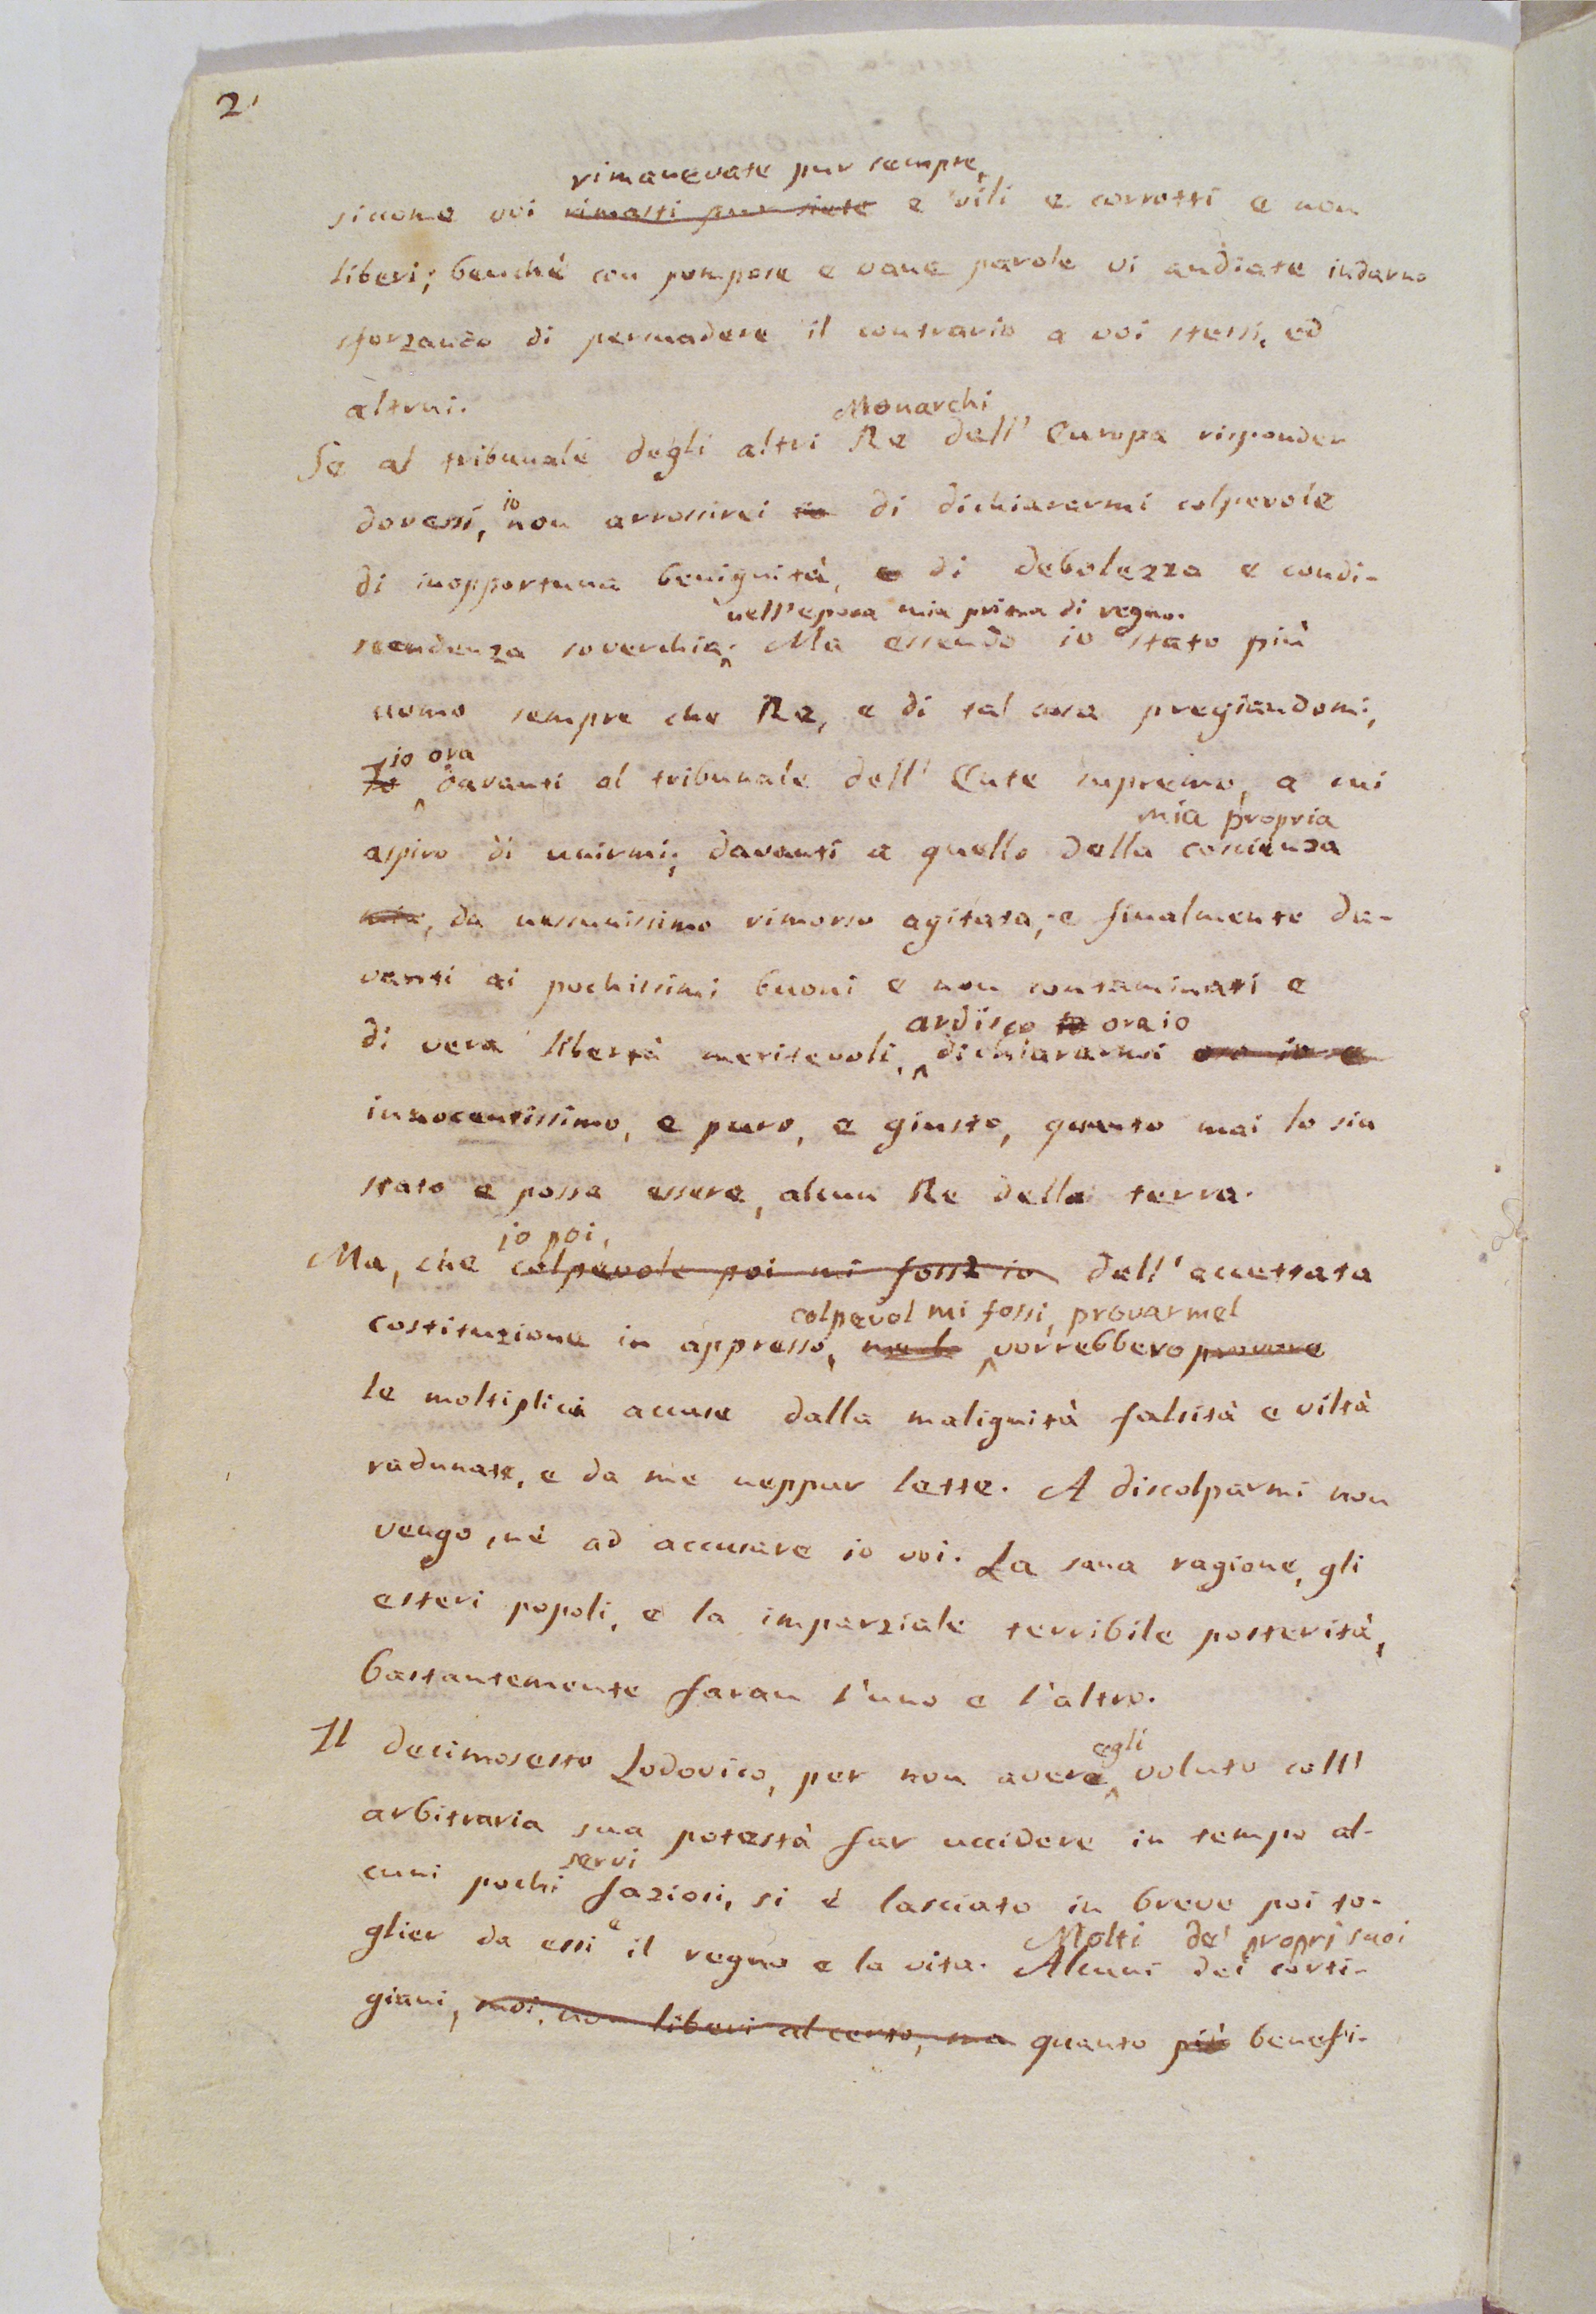 2
rimanevate pur sempre,
siccome voi rimasti pur siete e vili e corrotti e non
liberi; benchè con pompose e vane parole vi andiate indarno
sforzando di persuadere il contrario a voi stessi, ed
altrui.
Monarchi
Se al tribunale degli altri Re dell' Europa risponder
io
dovessi, non arrossirei io di dichiararmi colpevole
di inopportuna benignità, e di debolezza e condi-
nell'epoca mia prima di regno.
scendenza soverchia; Ma essendo io stato più
uomo sempre che Re, e di tal cosa pregiandomi;
io ora
Io davanti al tribunale dell' Ente supremo, a cui
mia propria
aspiro di unirmi; davanti a quello della coscienza
mia, da nessunissimo rimorso agitata; e finalmente da-
vanti ai pochissimi buoni e non contaminati e
ardisco io ora io
di vera libertà meritevoli, dichiararmi ora io e
innocentissimo, e puro, e giusto, quanto mai lo sia
stato e possa essere, alcun Re della terra.
io poi,
Ma, che colpevole poi mi foss'io dell' accettata
colpevol mi fossi, provarmel
costituzione in appresso, me lo vorrebbero provare
le moltiplici accuse dalla malignità falsità e viltà
radunate, e da me neppur lette. A discolparmi non
vengo, nè ad accusare io voi. La sana ragione, gli
esteri popoli, e la imparziale terribile posterità,
bastantemente faran l'uno e l'altro.
egli
Il decimosesto Lodovico, per non avere voluto coll'
arbitraria sua potestà far uccidere in tempo al-
servi
cuni pochi faziosi, si è lasciato in breve poi to-
e
glier da essi il regno e la vita. Alcuni dei corti-
Molti de' proprj suoi
giani, suoi, non liberi al certo, ma quanto più benefi-